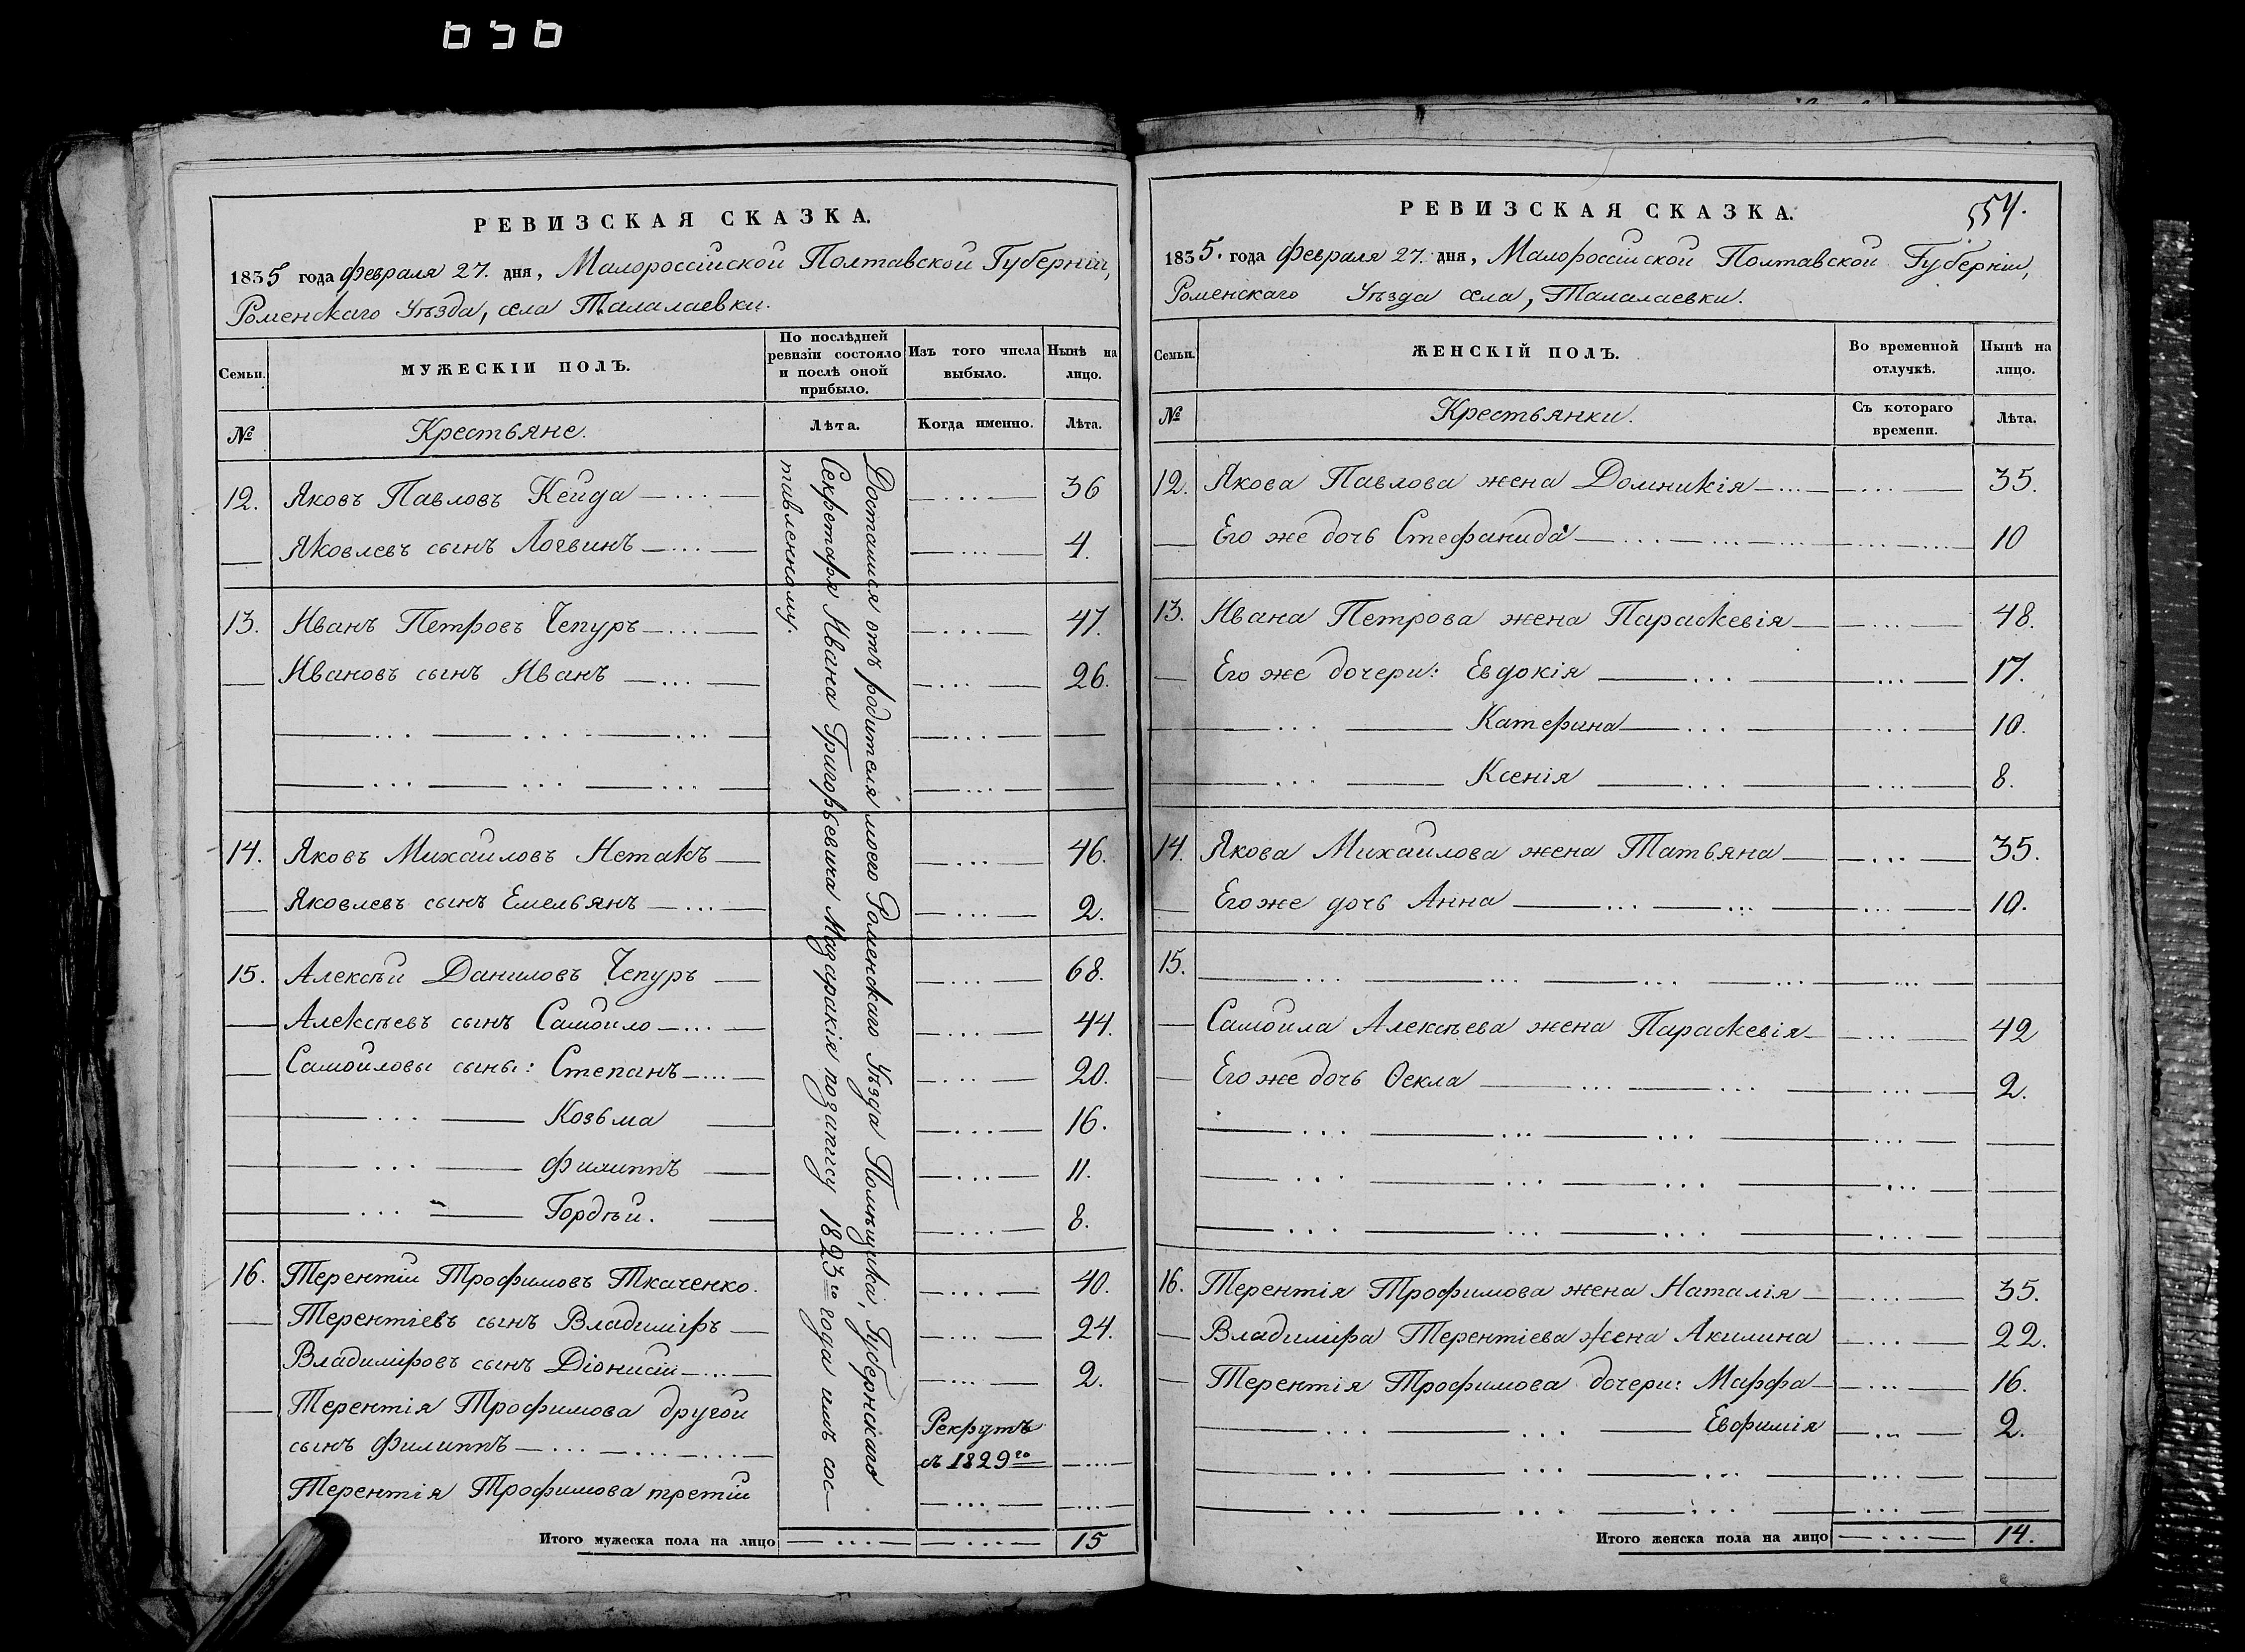 656
РЕВИЗСКАЯ СКАЗКА.
1835 года Февраля 27. дня, Малороссійской Полтавской Губерніи,
Роменскаго Уѣзда, села Талалаевки.
Семьи.
МУЖЕСКІЙ ПОЛЪ.
По послѣдней ревизіи состояло и послѣ оной прибыло.
Изъ того числа выбыло.
Нынѣ на лицо.
№
Крестьяне.
Лѣта.
Когда именно.
Лѣта.
Достался отъ родителя моего Роменскаго Уѣзда Помѣщика, Губернскаго
Секретаря Ивана Григорьевича Мадаракія позапису 1823го года имъ сос-
тавленному.
12. Яковъ Павловъ Кейда — ... — — ... — 36
— Яковлевъ сынъ Логвинъ — ... — — ... — 4.
13. Иванъ Петровъ Чепуръ — ... — — ... — 47.
— Ивановъ сынъ Иванъ — ... — — ... — 26.
14. Яковъ Михайловъ Нетакъ — — ... — 46.
— Яковлевъ сынъ Емельянъ — ... — — ... — 2.
15. Алексѣй Даниловъ Чепуръ — — ... — 68.
— Алексѣевъ сынъ Самойло — ... — — ... — 44.
— Самойловы сыны: Степанъ — ... — — ... — 20.
— ... — Козьма — — ... — 16.
— ... — Филиппъ — — ... — 11.
— ... — Гордѣй. — — ... — 8.
16. Терентій Трофимовъ Ткаченко. — ... — 40.
— Терентіевъ сынъ Владиміръ — — ... — 24.
Владиміровъ сынъ Діонисій — ... — — ... — 2.
— Терентія Трофимова другой Рекрутъ
сынъ Филиппъ — ... — ... — съ 1829го — ... —
Терентія Трофимова третій — ... — — ... —
Итого мужеска пола на лицо — ... — — ... — 15
РЕВИЗСКАЯ СКАЗКА.
554.
1835. года Февраля 27. дня, Малороссійской Полтавской Губерніи,
Роменскаго Уѣзда села, Талалаевки.
Семьи.
ЖЕНСКІЙ ПОЛЪ.
Во временной отлучкѣ.
Нынѣ на лицо.
№
Крестьянки.
Съ котораго времени.
Лѣта.
12. Якова Павлова жена Домникія — ... — — ... — 35.
— Его же дочь Стефанида — ... — ... — 10
13. Ивана Петрова жена Параскевія — — ... — 48.
— Его же дочери: Евдокія — ... — — ... — 17.
— ... — Катерина — ... — — ... — 10.
— ... — Ксенія — ... — — ... — 8.
14. Якова Михайлова жена Татьяна — — ... — 35.
— Его же дочь Анна — ... — ... — — ... — 10.
15. — ... — ... — ... — ... — ... —
— Самойла Алексѣева жена Параскевія — — ... — 42
— Его же дочь Ѳекла — ... — ... — — ... — 2.
16. Терентія Трофимова жена Наталія — — ... — 35.
— Владиміра Терентіева жена Акилина — ... — 22.
— Терентія Трофимова дочери: Марфа — — ... — 16.
— ... — ... — Евфимія — ... — 2.
Итого женска пола на лицо — ... — 14.